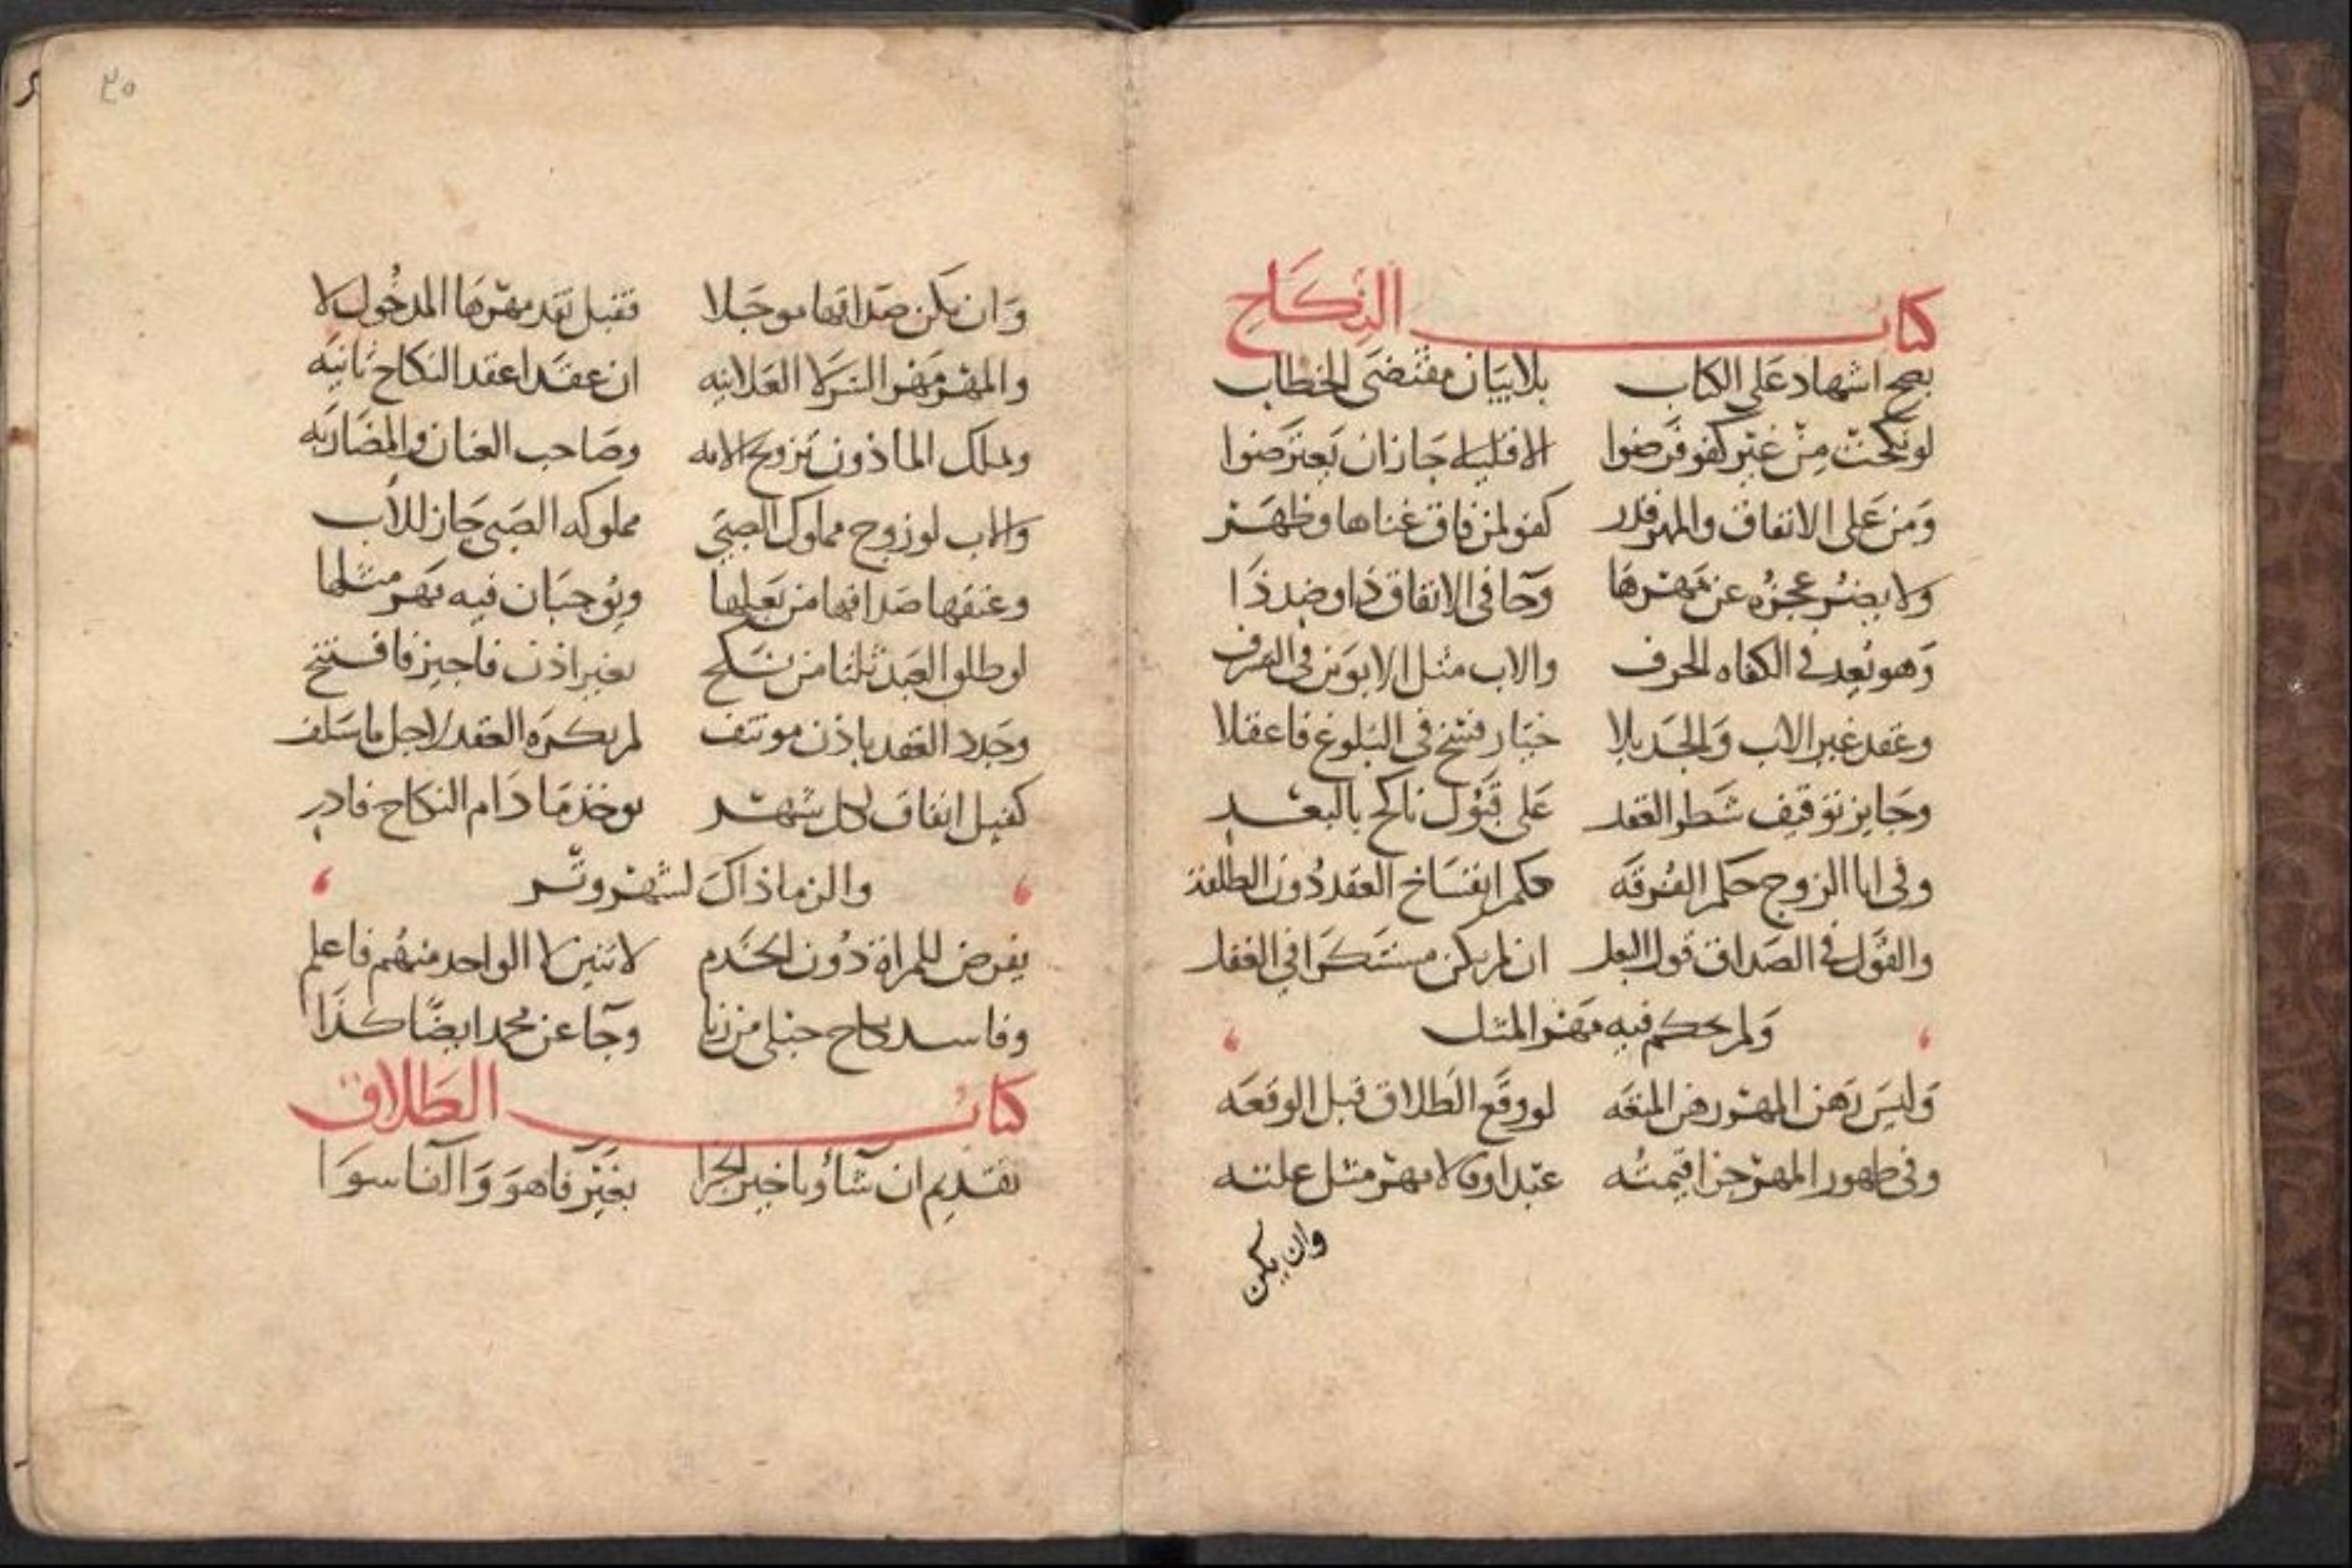 كتاب النكاح
يصح اشهاد على الكتاب بلا بيان مقتضى الخطاب
لو نكحت من غير كفو فرضوا الاقليله جاز ان يعترضوا
ومن على الانفاق والمهر قدر كفو لمن فاق غناها وظهر
ولا يضر عجزه عن مهرها وجا في الانفاق ذا وضد ذا
وهو يعد في الكفاه الحرف والاب مثل الابوين في الشرف
وعقد غير الاب والجد بلا خيار فسخ في البلوغ فاعقلا
وجايز توقيف شطر العقد على قبول ناكح بالبعد
وفي ابا الزوج حكم الفرقه حكم انفساخ العقد دون الطلقة
والقول في الصداق قول البعل ان لم يكن مستنكرا في العقل
ولم يحكم فيه مهر المثل
وليس رهن المهر رهن المتعه لو وقع الطلاق قبل الوقعه
وفي ظهور المهر حرا قيمته عبدا وقالا مهر مثل علته
وان يكن
٢٠
وان يكن صداقها موجلا فقبل نقد مهرها المدخول لا
والمهر مهر السر لا العلانيه ان عقدا عقد النكاح ثانيه
ويملك الماذون تزويج الامه وصاحب العنان والمضاربه
والاب لو زوج مملوك الصبي مملوكه الصبي جاز للاب
وعتقها صداقها من بعلها ويوجبان فيه مهر مثلها
لو طلق العبد ثلثا من نكح بغير اذن فاجيز فافتتح
وجدد العقد باذن موتنف لم يكره العقد لاجل ما سلف
كفيل انفاق لكل شهر يوخذ ما دام النكاح فادر
والزما ذاك لشهر وتر
يفرض للمراة دون الخدم لاثنين لا الواحد منهم فاعلم
وفاسد نكاح حبلى من زنا وجا عن محمد ايضا كذا
كتاب الطلاق
تقديم ان شا وتاخير الجزا بغير فا هو وآلفا سوا